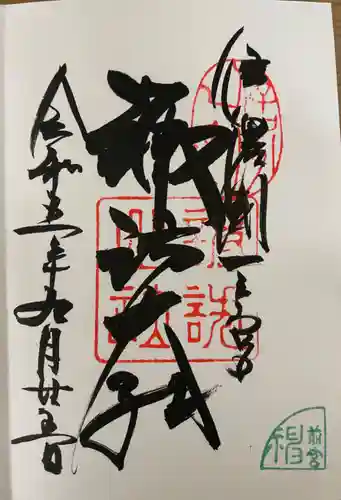 信濃國一之宮
諏訪大社
令和五年九月廿五日
前宮